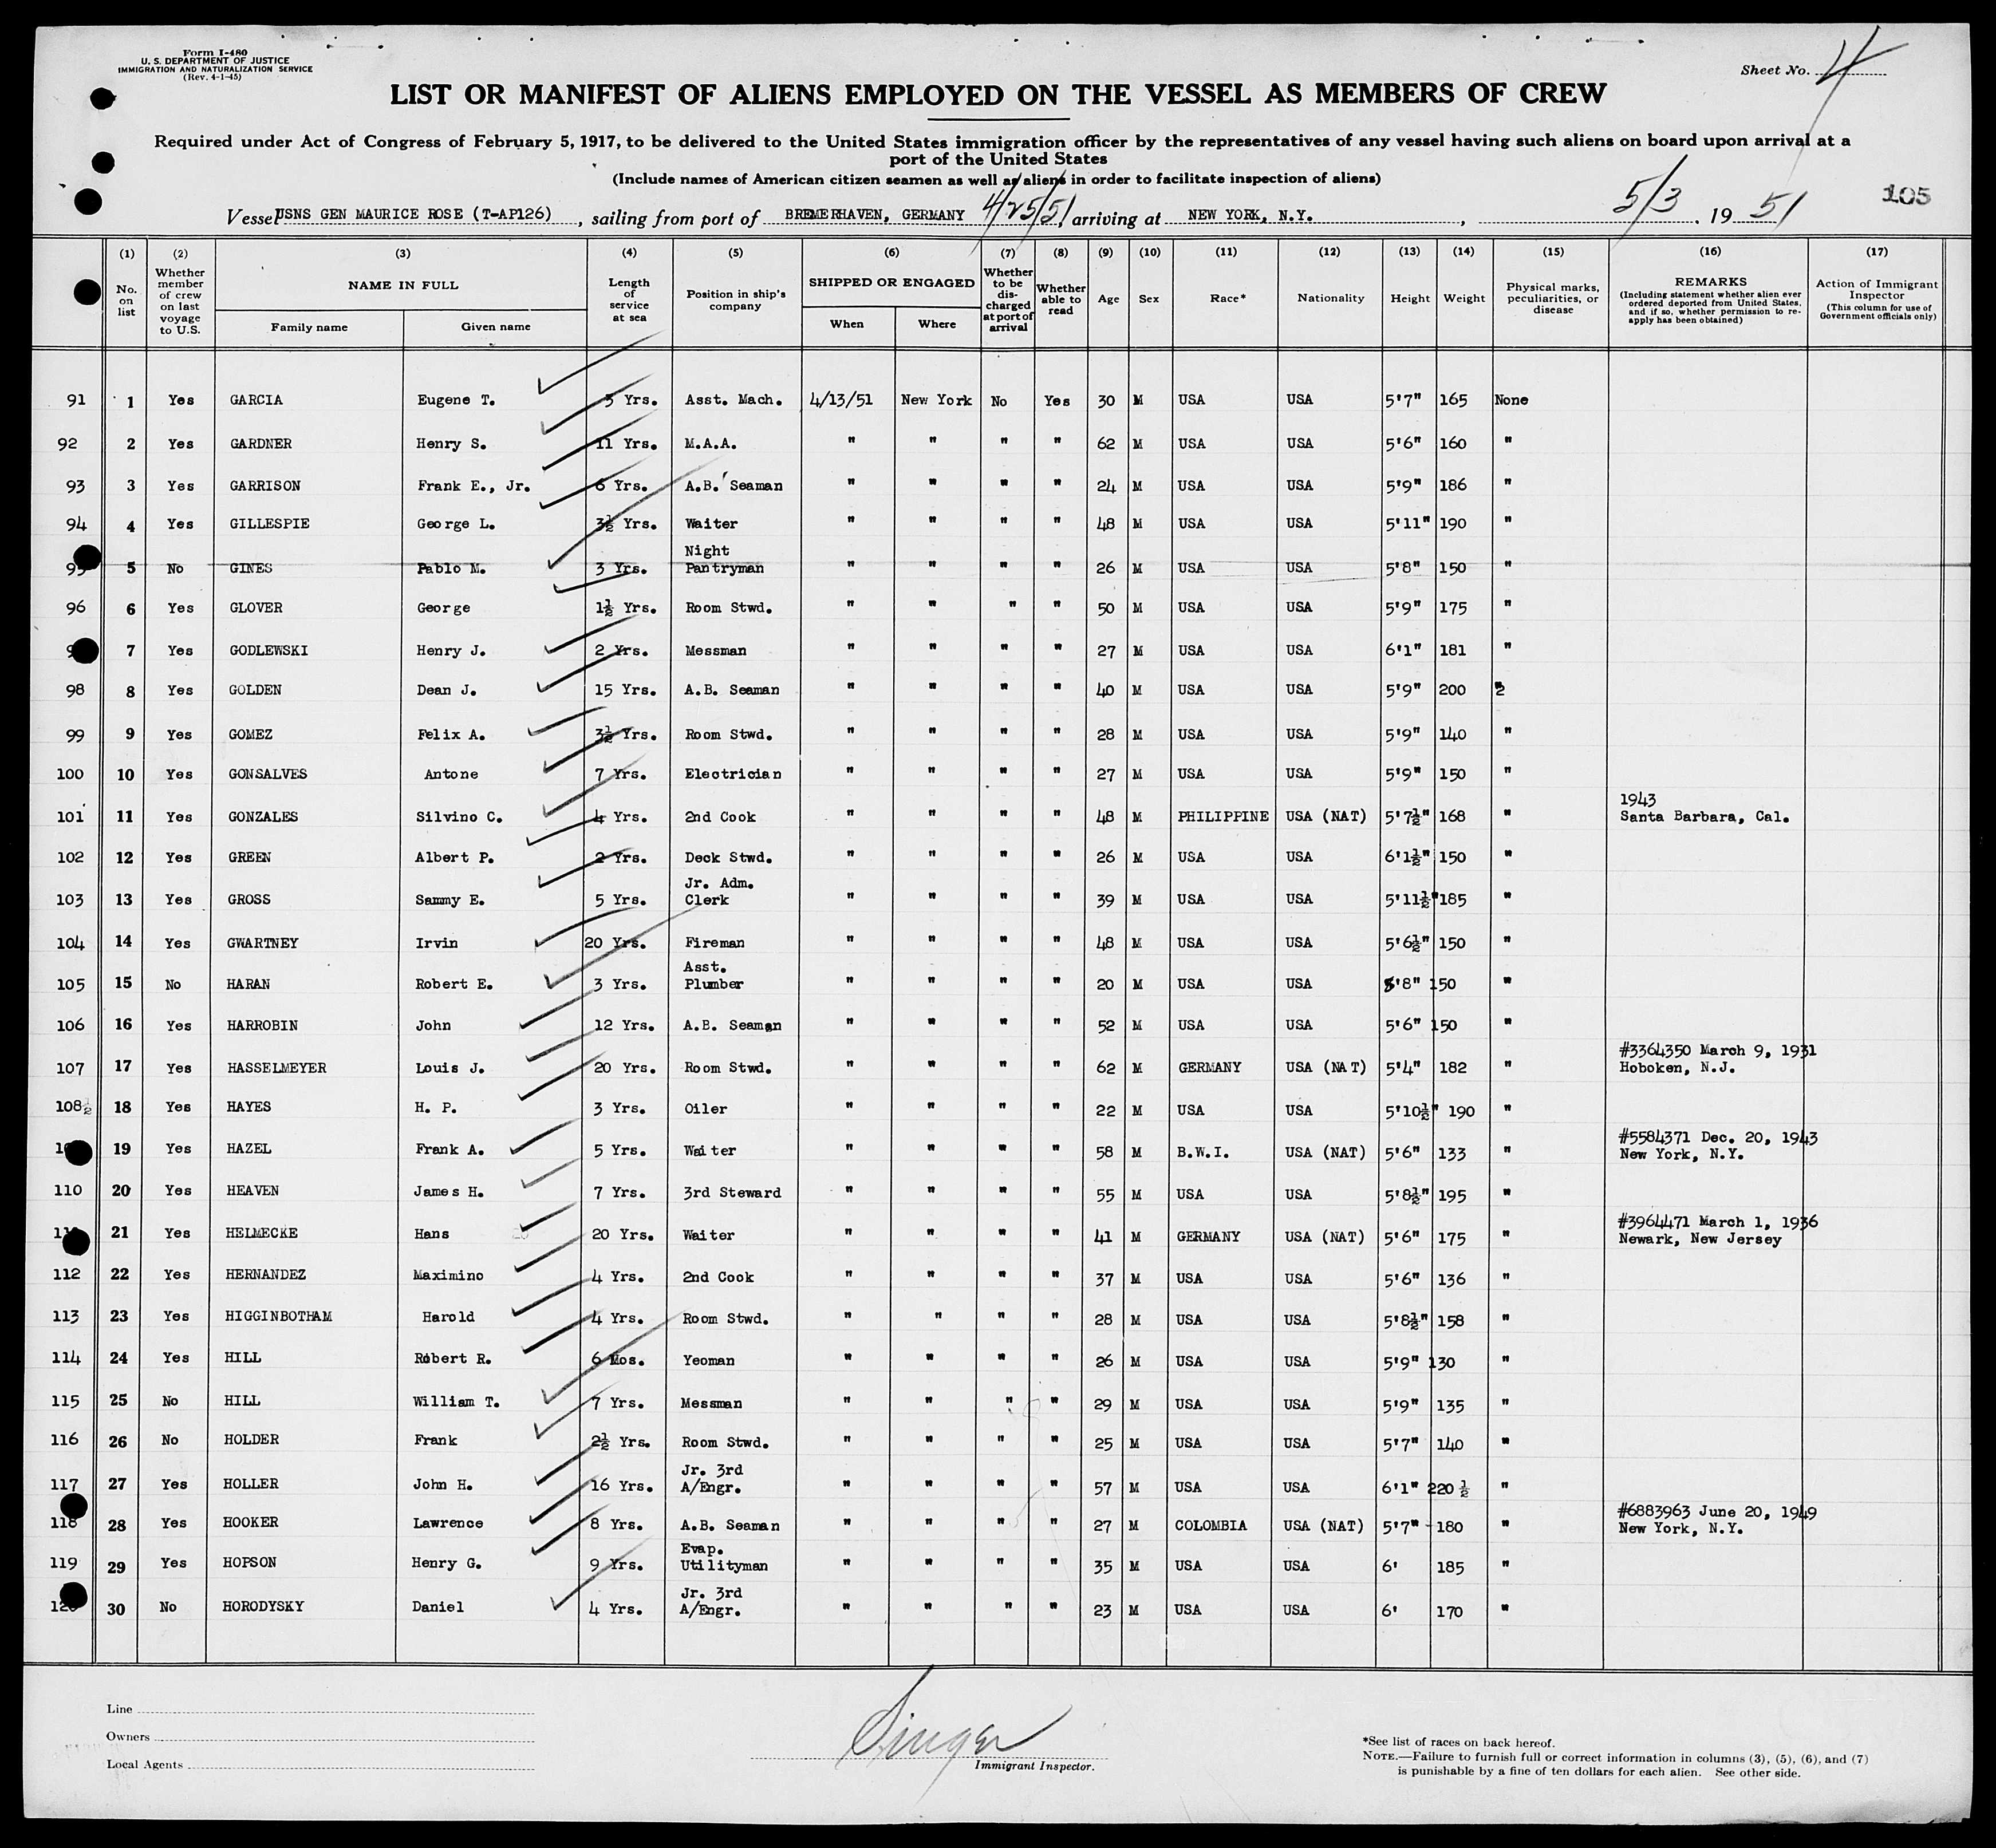 Form I-480
U. S. DEPARTMENT OF JUSTICE
IMMIGRATION AND NATURALIZATION SERVICE
(Rev. 4-1-45)
Sheet No. 4
LIST OR MANIFEST OF ALIENS EMPLOYED ON THE VESSEL AS MEMBERS OF CREW
Required under Act of Congress of February 5, 1917, to be delivered to the United States immigration officer by the representatives of any vessel having such aliens on board upon arrival at a
port of the United States
(Include names of American citizen seamen as well as aliens in order to facilitate inspection of aliens)
Vessel USNS GEN MAURICE ROSE (T-AP126), sailing from port of BREMERHAVEN, GERMANY 4/25/51, arriving at NEW YORK, N.Y., 5/3, 1951 105
(1) (2) (3) (4) (5) (6) (7) (8) (9) (10) (11) (12) (13) (14) (15) (16) (17)
No. on list | Whether member of crew on last voyage to U.S. | NAME IN FULL Family name Given name | Length of service at sea | Position in ship's company | SHIPPED OR ENGAGED When Where | Whether to be discharged at port of arrival | Whether able to read | Age | Sex | Race* | Nationality | Height | Weight | Physical marks, peculiarities, or disease | REMARKS (Including statement whether alien ever ordered deported from United States, and if so, whether permission to re-apply has been obtained) | Action of Immigrant Inspector (This column for use of Government officials only)
91 1 Yes GARCIA Eugene T. 3 Yrs. Asst. Mach. 4/13/51 New York No Yes 30 M USA USA 5'7" 165 None
92 2 Yes GARDNER Henry S. 11 Yrs. M.A.A. " " " " 62 M USA USA 5'6" 160 "
93 3 Yes GARRISON Frank E., Jr. 6 Yrs. A.B. Seaman " " " " 24 M USA USA 5'9" 186 "
94 4 Yes GILLESPIE George L. 3½ Yrs. Waiter " " " " 48 M USA USA 5'11" 190 "
95 5 No GINES Pablo M. 3 Yrs. Night Pantryman " " " " 26 M USA USA 5'8" 150 "
96 6 Yes GLOVER George 1½ Yrs. Room Stwd. " " " " 50 M USA USA 5'9" 175 "
9 7 Yes GODLEWSKI Henry J. 2 Yrs. Messman " " " " 27 M USA USA 6'1" 181 "
98 8 Yes GOLDEN Dean J. 15 Yrs. A.B. Seaman " " " " 40 M USA USA 5'9" 200 "
99 9 Yes GOMEZ Felix A. 3½ Yrs. Room Stwd. " " " " 28 M USA USA 5'9" 140 "
100 10 Yes GONSALVES Antone 7 Yrs. Electrician " " " " 27 M USA USA 5'9" 150 "
101 11 Yes GONZALES Silvino C. 4 Yrs. 2nd Cook " " " " 48 M PHILIPPINE USA (NAT) 5'7½" 168 " 1943 Santa Barbara, Cal.
102 12 Yes GREEN Albert P. 2 Yrs. Deck Stwd. " " " " 26 M USA USA 6'1½" 150 "
103 13 Yes GROSS Sammy E. 5 Yrs. Jr. Adm. Clerk " " " " 39 M USA USA 5'11½" 185 "
104 14 Yes GWARTNEY Irvin 20 Yrs. Fireman " " " " 48 M USA USA 5'6½" 150 "
105 15 No HARAN Robert E. 3 Yrs. Asst. Plumber " " " " 20 M USA USA 5'8" 150 "
106 16 Yes HARROBIN John 12 Yrs. A.B. Seaman " " " " 52 M USA USA 5'6" 150 "
107 17 Yes HASSELMEYER Louis J. 20 Yrs. Room Stwd. " " " " 62 M GERMANY USA (NAT) 5'4" 182 " #3364350 March 9, 1931 Hoboken, N.J.
108½ 18 Yes HAYES H. P. 3 Yrs. Oiler " " " " 22 M USA USA 5'10½" 190 "
10 19 Yes HAZEL Frank A. 5 Yrs. Waiter " " " " 58 M B.W.I. USA (NAT) 5'6" 133 " #5584371 Dec. 20, 1943 New York, N.Y.
110 20 Yes HEAVEN James H. 7 Yrs. 3rd Steward " " " " 55 M USA USA 5'8½" 195 "
11 21 Yes HELMECKE Hans 20 Yrs. Waiter " " " " 41 M GERMANY USA (NAT) 5'6" 175 " #3964471 March 1, 1936 Newark, New Jersey
112 22 Yes HERNANDEZ Maximino 4 Yrs. 2nd Cook " " " " 37 M USA USA 5'6" 136 "
113 23 Yes HIGGINBOTHAM Harold 4 Yrs. Room Stwd. " " " " 28 M USA USA 5'8½" 158 "
114 24 Yes HILL Robert R. 6 Mos. Yeoman " " " " 26 M USA USA 5'9" 130 "
115 25 No HILL William T. 7 Yrs. Messman " " " " 29 M USA USA 5'9" 135 "
116 26 No HOLDER Frank 2½ Yrs. Room Stwd. " " " " 25 M USA USA 5'7" 140 "
117 27 Yes HOLLER John H. 16 Yrs. Jr. 3rd A/Engr. " " " " 57 M USA USA 6'1" 220 ½ "
118 28 Yes HOOKER Lawrence 8 Yrs. A.B. Seaman " " " " 27 M COLOMBIA USA (NAT) 5'7" 180 " #6883963 June 20, 1949 New York, N.Y.
119 29 Yes HOPSON Henry G. 9 Yrs. Evap. Utilityman " " " " 35 M USA USA 6' 185 "
120 30 No HORODYSKY Daniel 4 Yrs. Jr. 3rd A/Engr. " " " " 23 M USA USA 6' 170 "
Line
Owners
Local Agents
Singer
Immigrant Inspector.
*See list of races on back hereof.
NOTE.—Failure to furnish full or correct information in columns (3), (5), (6), and (7)
is punishable by a fine of ten dollars for each alien. See other side.